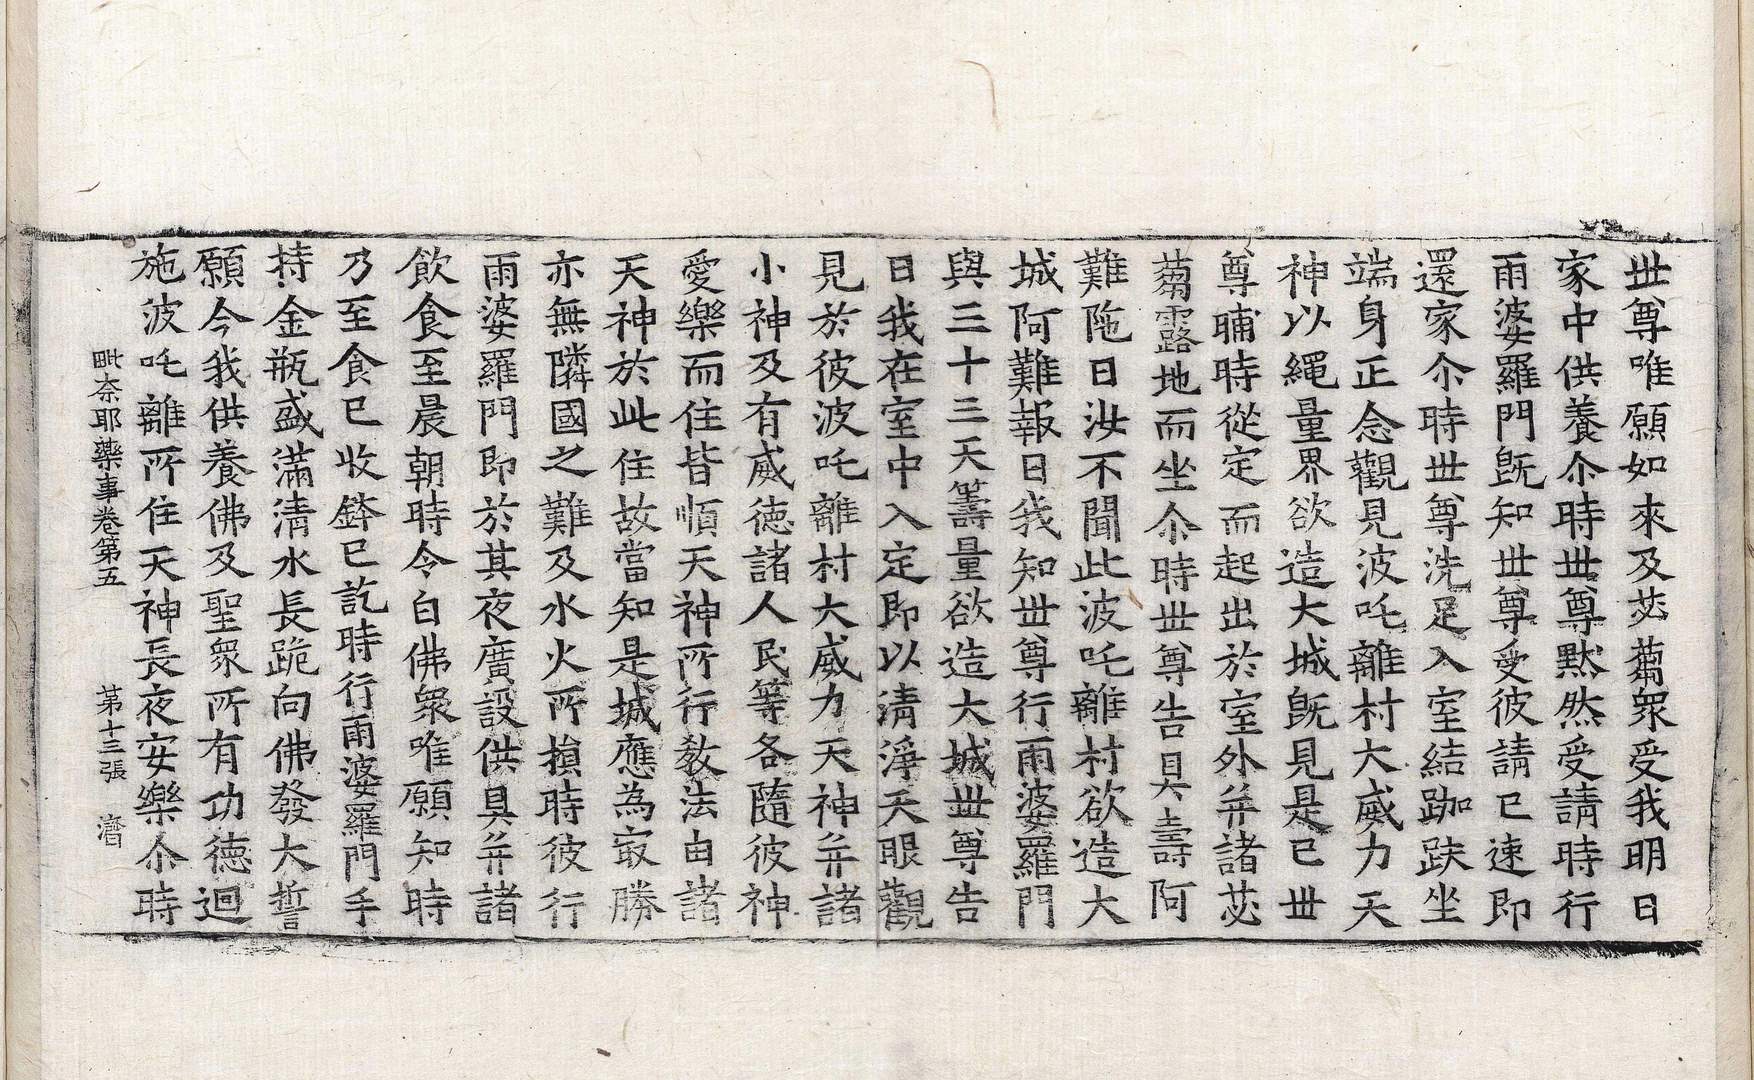 世尊唯願如來及苾蒭衆受我明日
家中供養尒時世尊黙然受請時行
雨婆羅門旣知世尊受彼請已速即
還家尒時世尊洗足入室結跏趺坐
端身正念觀見波吒離村大威力天
神以繩量界欲造大城旣見是已世
尊晡時從定而起出於室外并諸苾
蒭露地而坐尒時世尊告具壽阿
難陁曰汝不聞此波吒離村欲造大
城阿難報曰我知世尊行雨婆羅門
與三十三天籌量欲造大城世尊告
曰我在室中入定即以清淨天眼觀
見於彼波吒離村大威力天神并諸
小神及有威德諸人民等各隨彼神
愛樂而住皆順天神所行教法由諸
天神於此住故當知是城應為㝡勝
亦無隣國之難及水火所損時彼行
雨婆羅門即於其夜廣設供具并諸
飲食至晨朝時令白佛衆唯願知時
乃至食已收鉢已訖時行雨婆羅門手
持金瓶盛滿清水長跪向佛發大誓
願今我供養佛及聖衆所有功德迴
施波吒離所住天神長夜安樂尒時
毗奈耶藥事卷第五 第十三張 濟